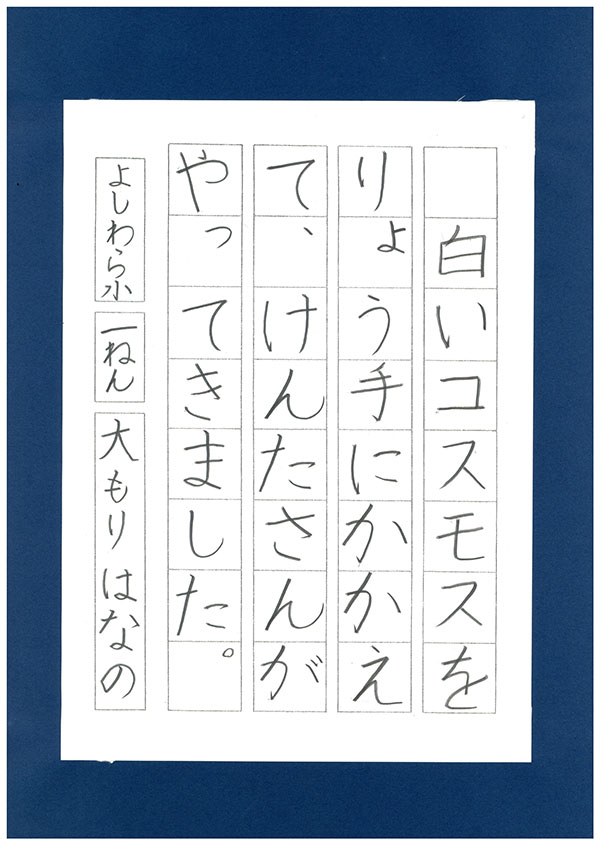 白いコスモスを
りょう手にかかえ
て、けんたさんが
やってきました。
よしわら小 一ねん 大もりはなの